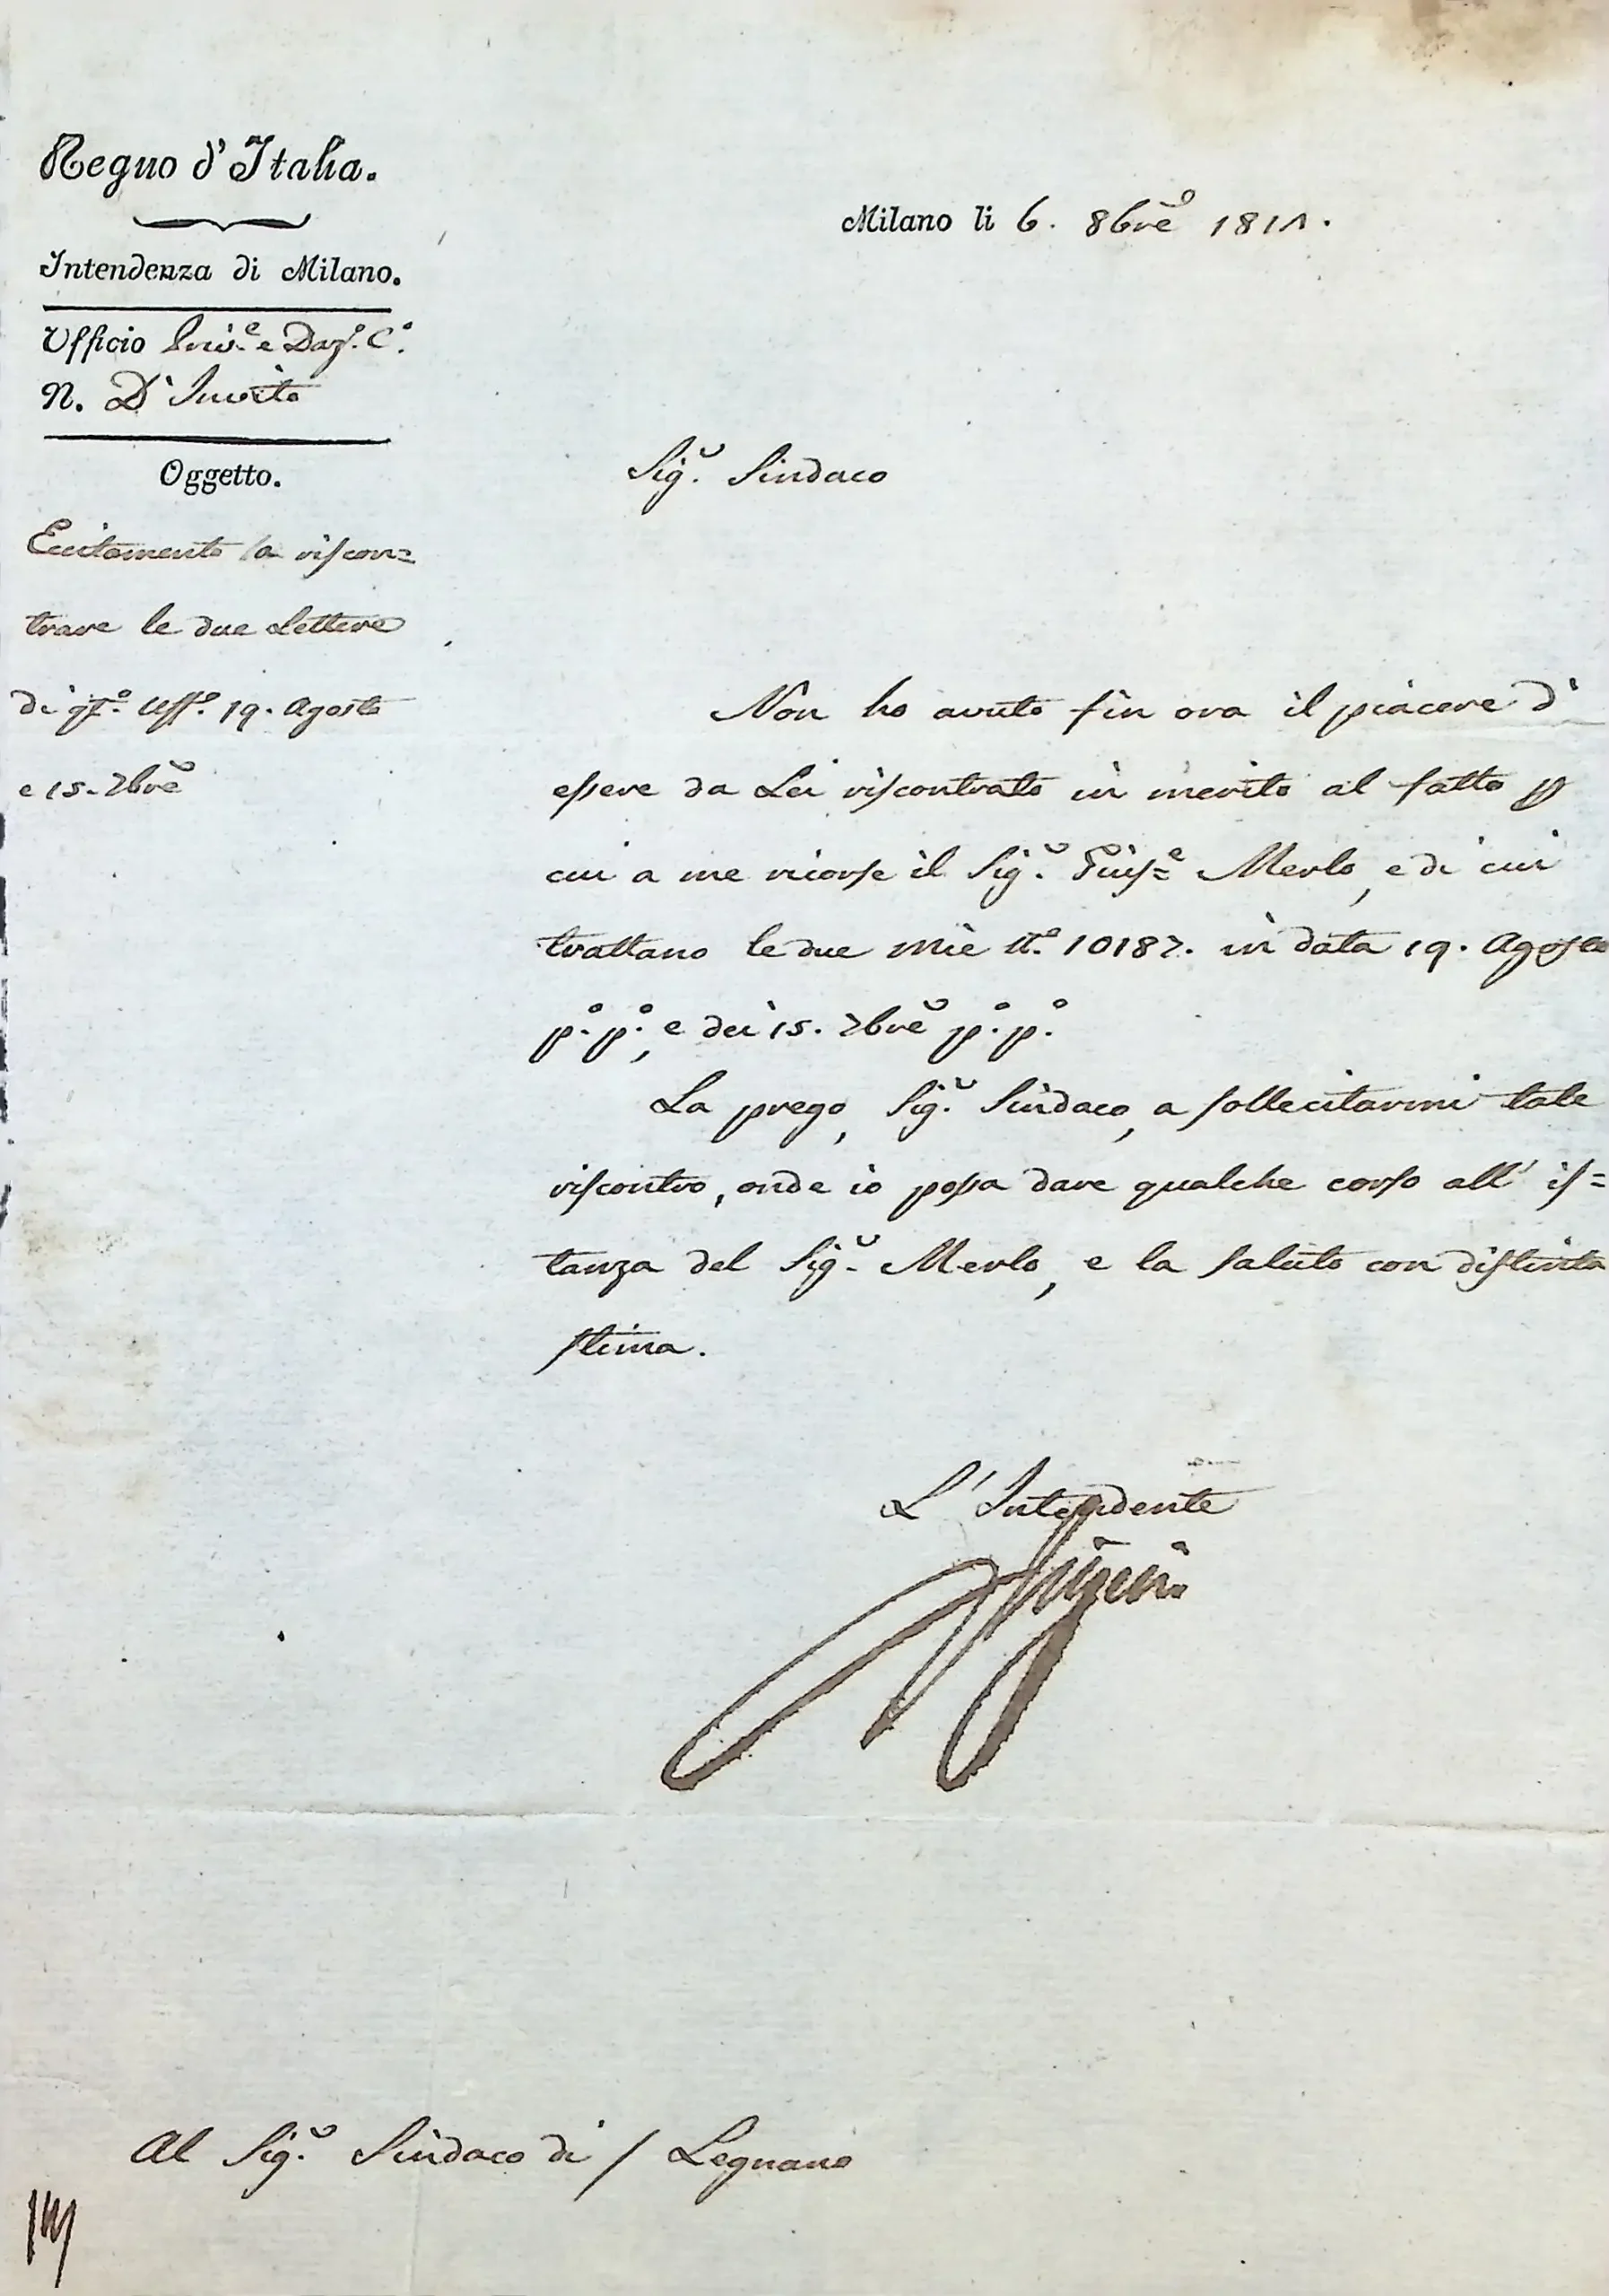 Regno d'Italia.
Intendenza di Milano.
Ufficio Priv.e e Daz.o C.o
N. D'Invito
Oggetto.
Eccitamento a riscon=
trare le due Lettere
di qt.o Uff.o 19. Agosto
e 15. 7bre
Milano li 6. 8bre 1811.
Sig.r Sindaco
Non ho avuto fin ora il piacere d'
essere da Lei riscontrato in merito al fatto p
cui a me ricorse il Sig.r Giuse Merlo, e di cui
trattano le due mie N.o 10187. in data 19. Agosto
p.o p.o, e dei 15. 7bre p.o p.o
La prego, Sig.r Sindaco, a sollecitarmi tale
riscontro, onde io possa dare qualche corso all' is=
tanza del Sig.r Merlo, e la saluto con distinta
stima.
L'Intendente
Al Sig.r Sindaco di / Legnano